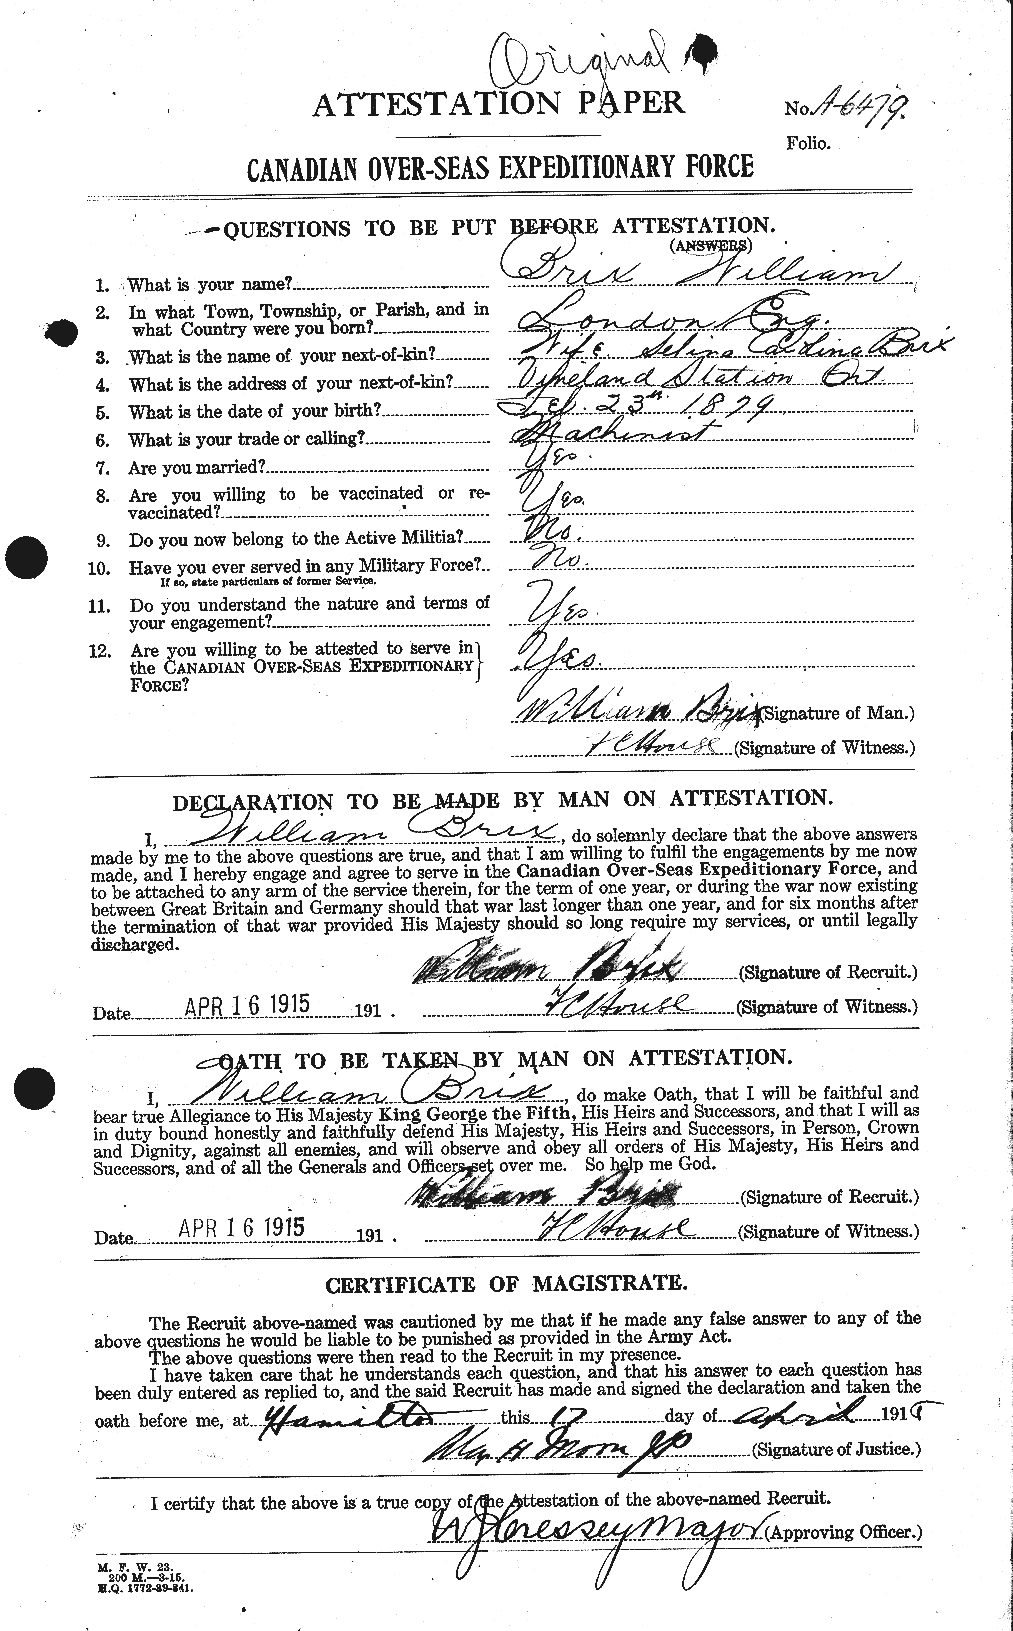 Original
ATTESTATION PAPER
No. A-6479.
Folio.
CANADIAN OVER-SEAS EXPEDITIONARY FORCE
QUESTIONS TO BE PUT BEFORE ATTESTATION.
(ANSWERS)
1. What is your name? Brix William
2. In what Town, Township, or Parish, and in
what Country were you born? London Eng.
3. What is the name of your next-of-kin? Wife. Selina Brix
4. What is the address of your next-of-kin? Vineland Station Ont
5. What is the date of your birth? Feb. 23rd 1879
6. What is your trade or calling? Machinist
7. Are you married? Yes.
8. Are you willing to be vaccinated or re-
vaccinated? Yes.
9. Do you now belong to the Active Militia? No.
10. Have you ever served in any Military Force? No.
If so, state particulars of former Service.
11. Do you understand the nature and terms of
your engagement? Yes.
12. Are you willing to be attested to serve in
the CANADIAN OVER-SEAS EXPEDITIONARY Yes.
FORCE?
William Brix (Signature of Man.)
F C House (Signature of Witness.)
DECLARATION TO BE MADE BY MAN ON ATTESTATION.
I, William Brix, do solemnly declare that the above answers
made by me to the above questions are true, and that I am willing to fulfil the engagements by me now
made, and I hereby engage and agree to serve in the Canadian Over-Seas Expeditionary Force, and
to be attached to any arm of the service therein, for the term of one year, or during the war now existing
between Great Britain and Germany should that war last longer than one year, and for six months after
the termination of that war provided His Majesty should so long require my services, or until legally
discharged.
William Brix (Signature of Recruit.)
Date APR 16 1915 191 . F C House (Signature of Witness.)
OATH TO BE TAKEN BY MAN ON ATTESTATION.
I, William Brix, do make Oath, that I will be faithful and
bear true Allegiance to His Majesty King George the Fifth, His Heirs and Successors, and that I will as
in duty bound honestly and faithfully defend His Majesty, His Heirs and Successors, in Person, Crown
and Dignity, against all enemies, and will observe and obey all orders of His Majesty, His Heirs and
Successors, and of all the Generals and Officers set over me. So help me God.
William Brix (Signature of Recruit.)
Date APR 16 1915 191 . F C House (Signature of Witness.)
CERTIFICATE OF MAGISTRATE.
The Recruit above-named was cautioned by me that if he made any false answer to any of the
above questions he would be liable to be punished as provided in the Army Act.
The above questions were then read to the Recruit in my presence.
I have taken care that he understands each question, and that his answer to each question has
been duly entered as replied to, and the said Recruit has made and signed the declaration and taken the
oath before me, at Hamilton this 17 day of April 1915
H Moon JP (Signature of Justice.)
I certify that the above is a true copy of the Attestation of the above-named Recruit.
W J Cressey Major (Approving Officer.)
M. F. W. 23.
200 M.—3-15.
H.Q. 1772-39-841.